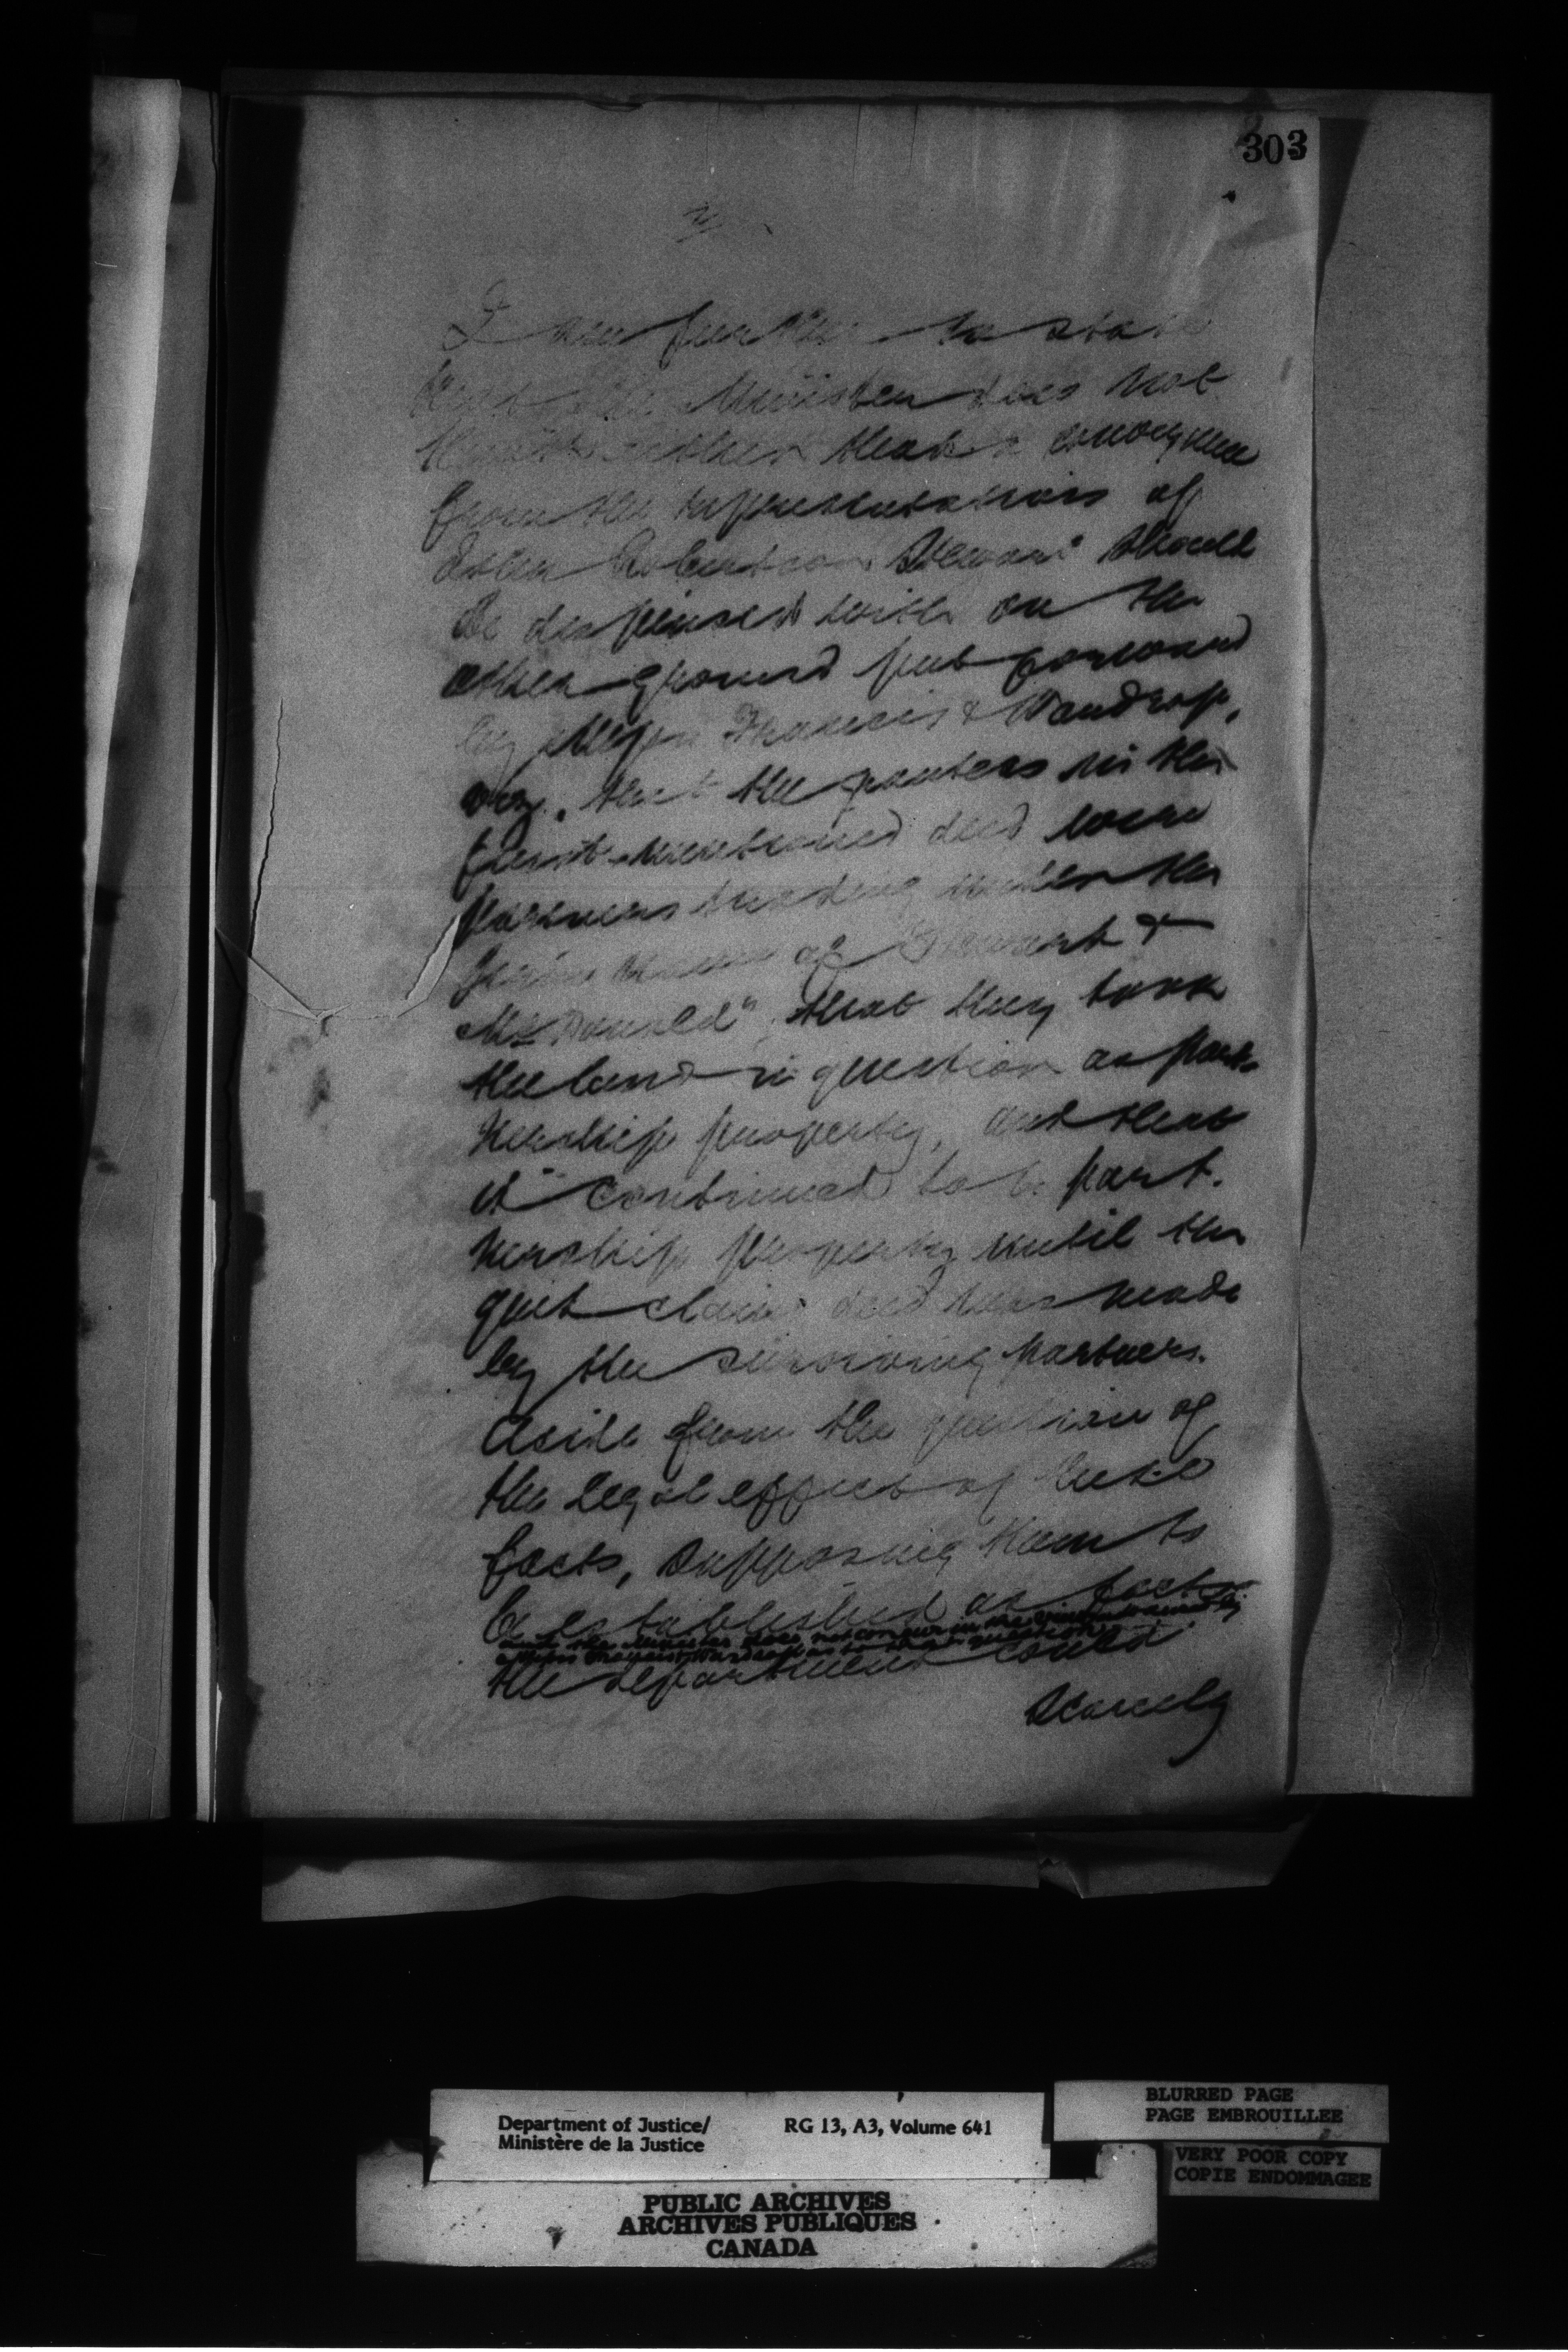 303
I am further to state
that the Minister does not
think either that a conveyance
from the representatives of
John Robertson Stewart should
be dispensed with on the
other ground put forward
by Messrs Francis & Wardrop,
viz, that the grantees in the
first mentioned deed were
partners trading under the
firm name of "Stewart &
McDonald" that they took
the land in question as part-
nership property, and that
it continued to be part-
nership property until the
quit claim deed was made
by the surviving partners.
Aside from the question of
the legal effect of these
facts, supposing them to
be established as facts
and the Minister does not concur in the view entertained by
Messrs Francis & Wardrop as to that question
the department could
scarcely
Department of Justice/
Ministère de la Justice
RG 13, A3, Volume 641
BLURRED PAGE
PAGE EMBROUILLEE
VERY POOR COPY
COPIE ENDOMMAGEE
PUBLIC ARCHIVES
ARCHIVES PUBLIQUES
CANADA